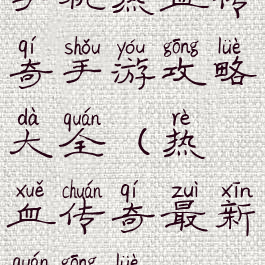 手机热血传
qí shǒu yóu gōng lüè
奇手游攻略
dà quán rè
大全（热
xuě chuán qí zuì xīn
血传奇最新
quán gōng lüè